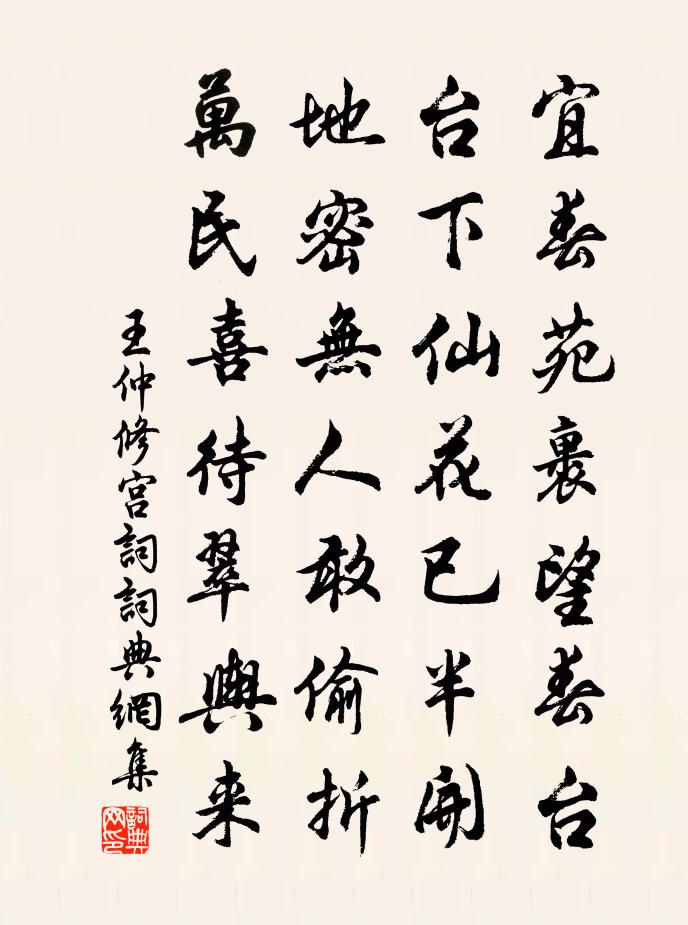 宜春苑裹望春台
台下仙花已半開
地密無人敢偷折
萬民喜待翠輿来
王仲修宮詞詞典網集
詞典网印